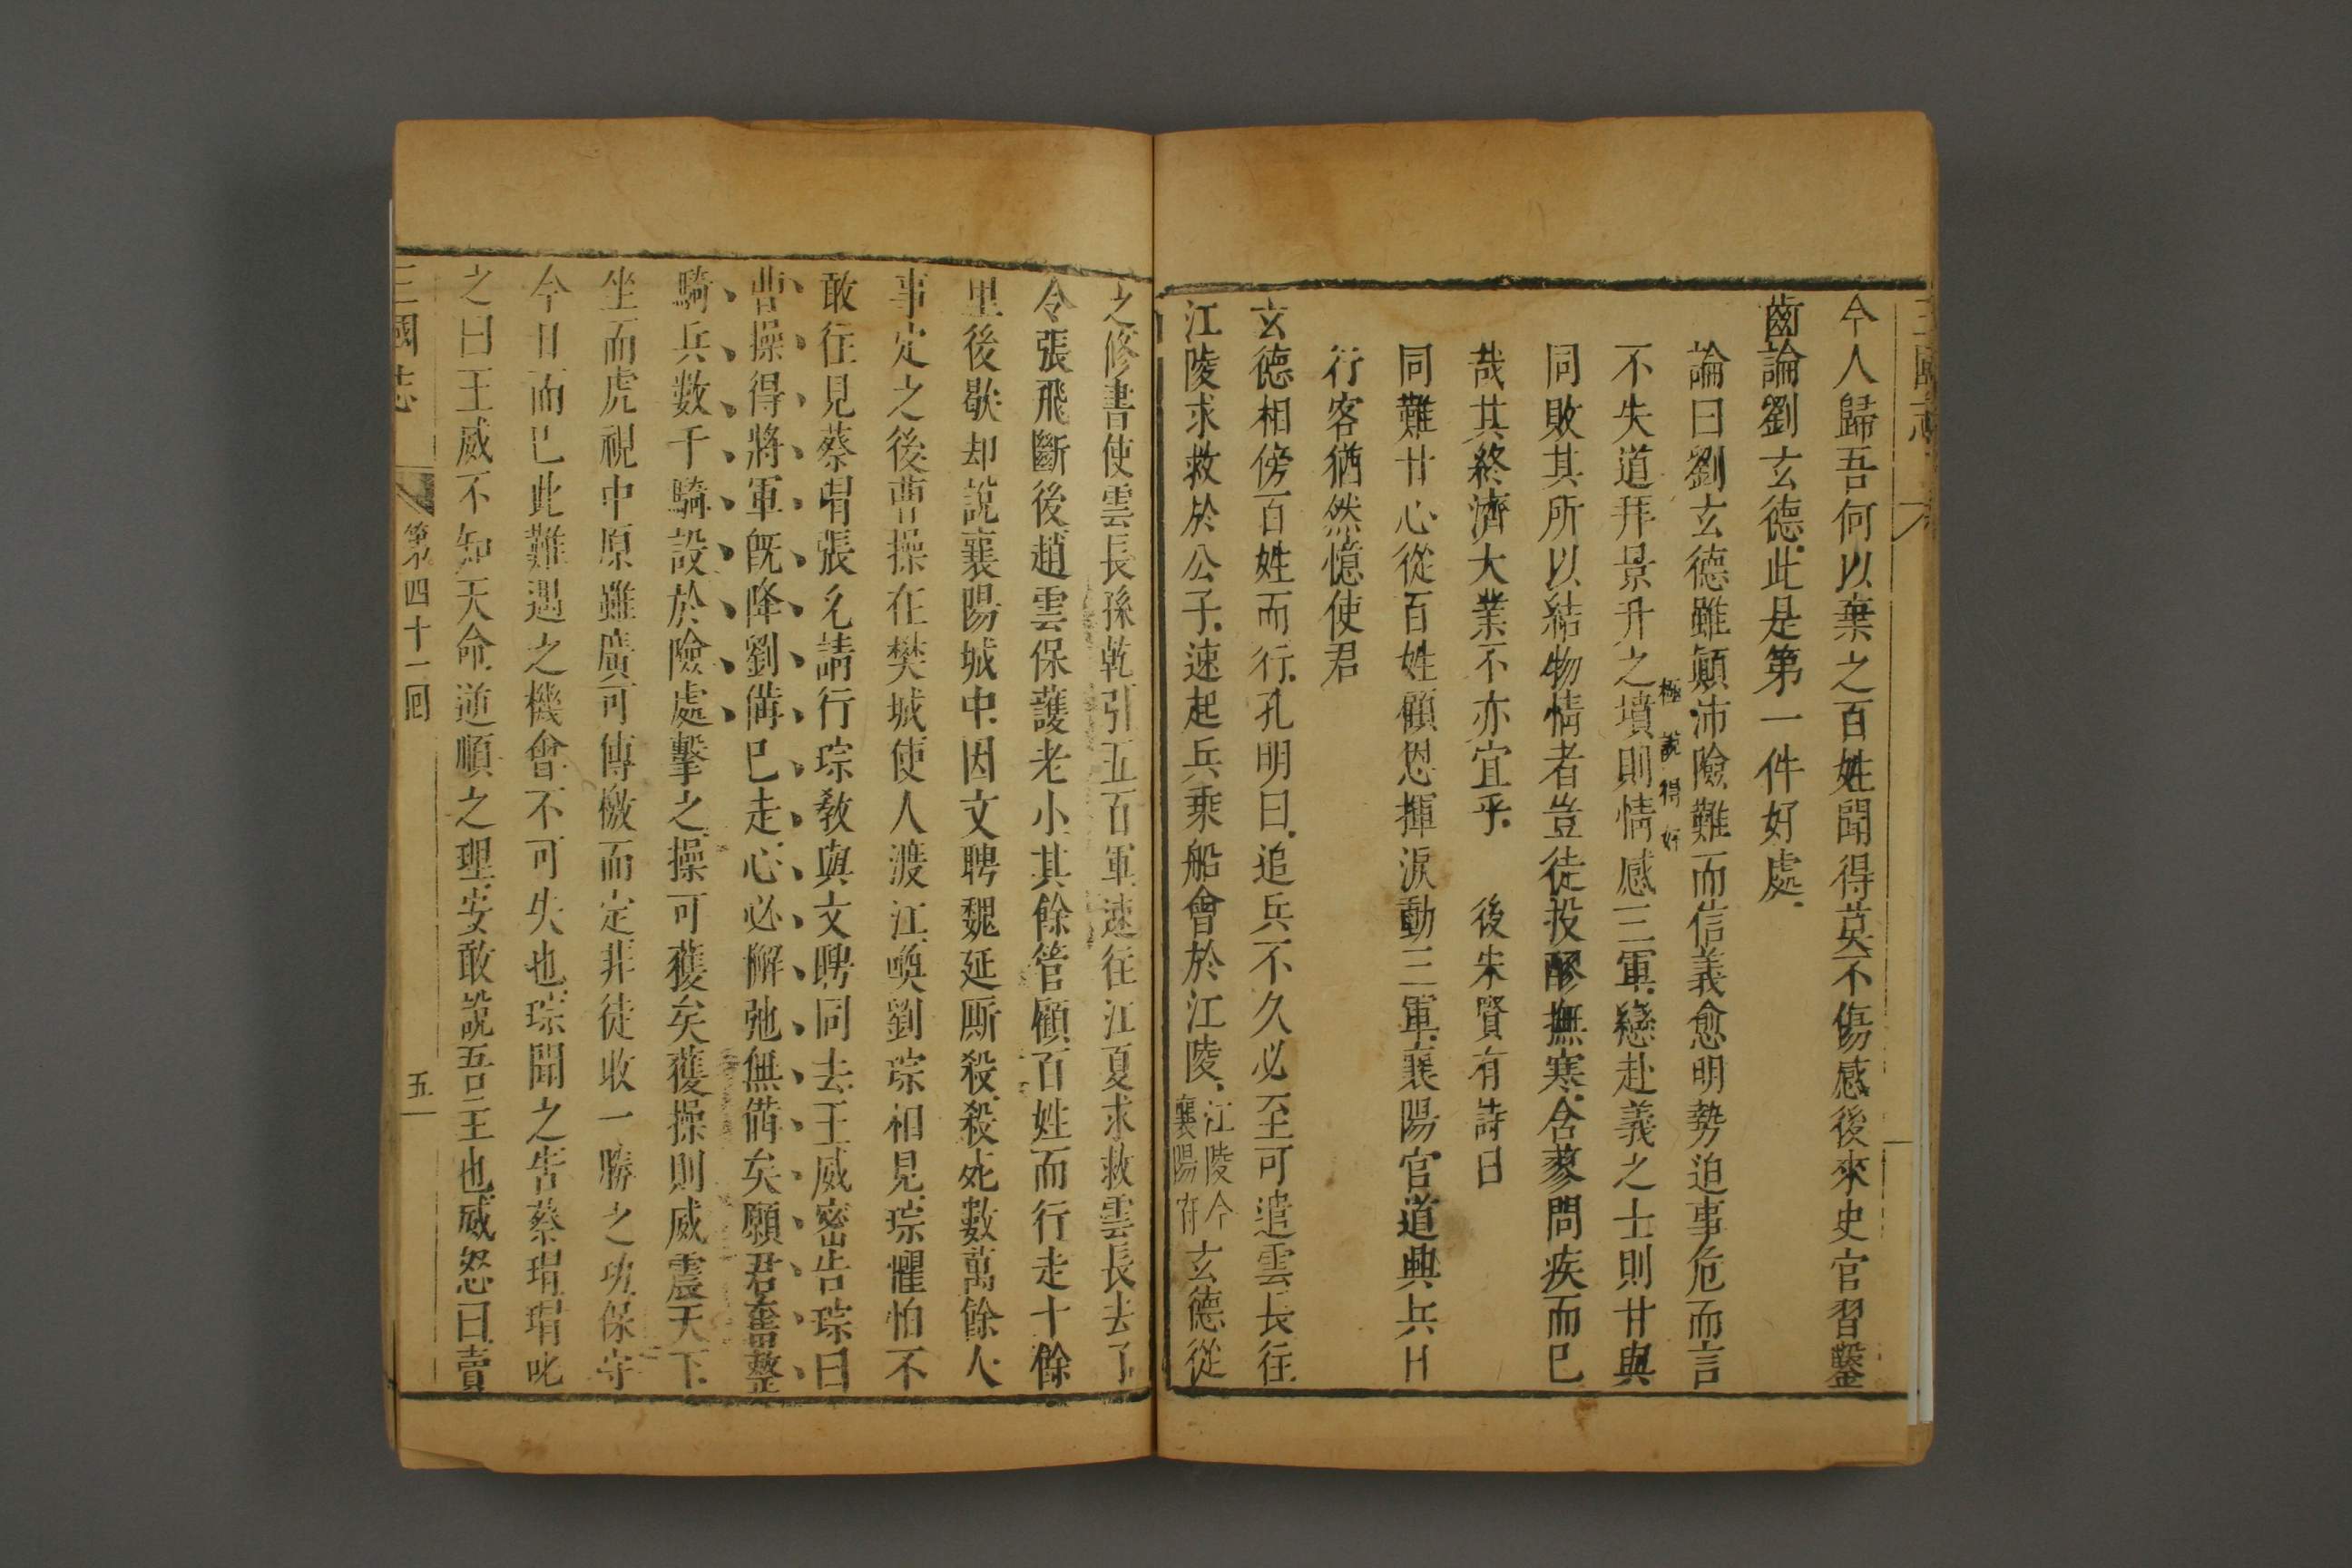 三國志
今人歸吾何以棄之百姓聞得莫不傷感後來史官習鑿
齒論劉玄德此是第一件好處
論曰劉玄德雖顛沛險難而信義愈明勢迫事危而言
極說得好
不失道拜景升之墳則情感三軍戀赴義之士則甘與
同敗其所以結物情者豈徒投醪撫寒含蓼問疾而已
哉其終濟大業不亦宜乎 後朱賢有詩曰
同難甘心從百姓顧恩揮淚動三軍襄陽官道興兵日
行客猶然憶使君
玄德相傍百姓而行孔明曰追兵不久必至可遣雲長往
江陵求救於公子速起兵乘船會於江陵江陵今襄陽府玄德從
之修書使雲長孫乾引五百軍速往江夏求救雲長去了
令張飛斷後趙雲保護老小其餘管顧百姓而行走十餘
里後歇却說襄陽城中因文聘魏延厮殺殺死數萬餘人
事定之後曹操在樊城使人渡江喚劉琮相見琮懼怕不
敢往見蔡瑁張允請行琮教與文聘同去王威密告琮曰
曹操得將軍既降劉備已走心必懈弛無備矣願君奮整
騎兵數千騎設於險處擊之操可獲矣獲操則威震天下
坐而虎視中原雖廣可傳檄而定非徒收一勝之功保守
今日而已此難遇之機會不可失也琮聞之告蔡瑁瑁叱
之曰王威不知天命逆順之理安敢說吾主也威怒曰賣
三國志 第四十一囘 五